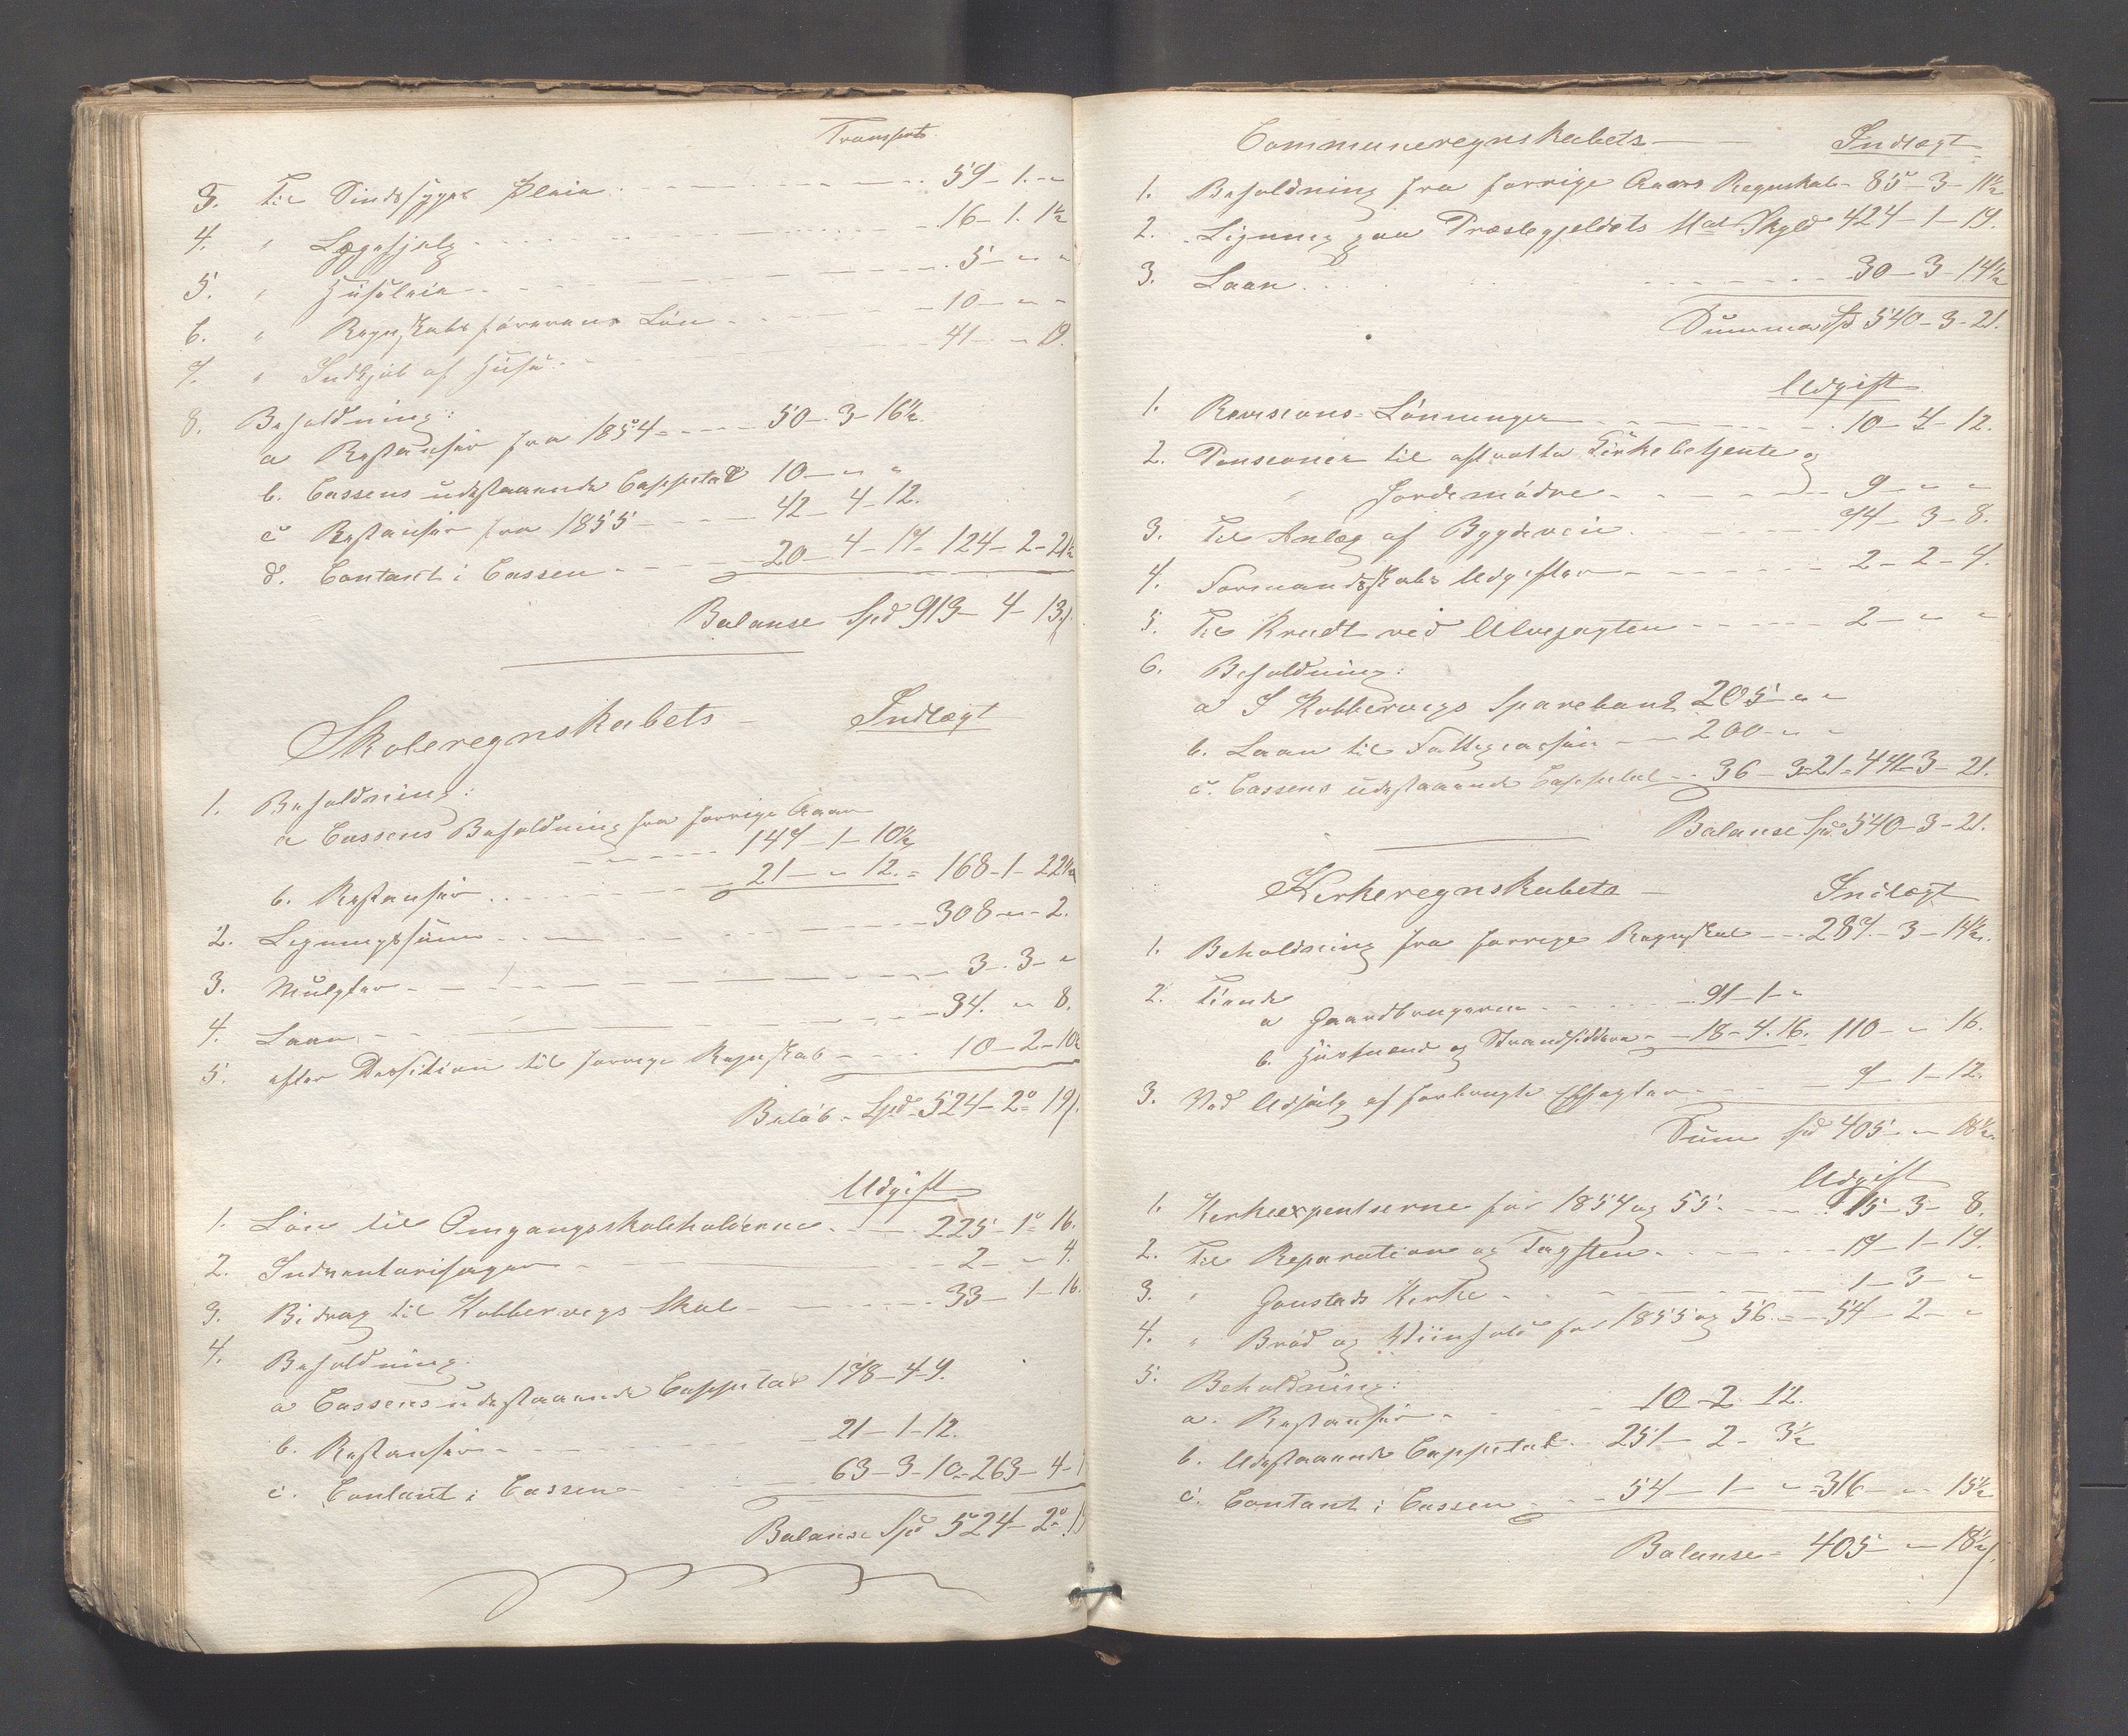 Transport
3. Til Sindssyges Pleie 59 - 1 - "
4. " Lægehjelp 16 - 1 - 1½
5. " Huusleie 5 - " - "
6. " Regnskabsførerens Løn 10 - " - "
7. " Indkjøb af Huse 41 - " - 19.
8. Beholdning:
a Restanser fra 1854 50 - 3 - 16½
b. Cassens udestaaende Cappital 10 - " - "
c Restanser fra 1855 42 - 4 - 12.
d. Contant i Cassen 20 - 4 - 17 - 124 - 2 - 21½
Balanse Spd 913 - 4 - 13
Skoleregnskabets - Indtægt
1. Beholdning:
a Cassens Beholdning fra forrige Aar
147 - 1 - 10½
b. Restanser 21 - " - 12. = 168 - 1 - 22½
2. Ligningssum 308 - " - 2.
3. Mulgter 3 - 3 - "
4. Laan 34. " 8.
5. efter Desition til forrige Regnskab 10 - 2 - 10½
Beløb - Spd 524 - 2 - 19
Udgift
1. Løn til Omgangsskoleholderne 225 - 1 - 16.
2. Indventarisager 2 - " - 4.
3. Bidrag til Kobbervigs Skole 33 - 1 - 16
4. Beholdning:
a Cassens udestaaende Cappital 178 - 4 - 9.
b. Restanser 21 - 1 - 12.
c. Contant i Cassen 63 - 3 - 10 - 263 - 4 -
Balanse Spd 524 - 2
Communeregnskabets - Indtægt
1. Beholdning fra forrige Aars Regnskab 85 - 3 - 11½
2. Ligning paa Præstegjeldets Mat Skyld 424 - 1 - 19.
3. Laan 30 - 3 - 14½
Summa Spd 540 - 3 - 21.
Udgift
1. Revisions-Lønninger 10 - 4 - 12.
2. Pensioner til afsatte Kirkebetjente og
" Jordemødre 9 - " - "
3. Til Anlæg af Bygdevei 74 - 3 - 8.
4. Formandskabs Udgifter 2 - 2 - 4.
5. Til Krudt ved Ulvejagten 2 - " - "
6. Beholdning:
a I Kobbervigs Sparebank 205 - " - "
b. Laan til Fattigcassen 200 - " - "
c. Cassens udestaaende Cappital 36 - 3 - 21 = 441 - 3 - 21.
Balanse Spd. 540 - 3 - 21.
Kirkeregnskabets - Indtægt
1. Beholdning fra forrige Regnskab 287 - 3 - 14½.
2. Tiende
a Gaardbrugerne 91 - 1 - "
b. Husmænd og Strandsiddere 18 - 4. 16. 110 - " 16.
3. Ved Udsalg af forbrugte Effegter 7 - 1 - 12.
Sum Spd 405 - " - 18½
Udgift
1. Kirkeexpentserne for 1854 og 55. 15 - 3 - 8.
2. Til Reparation og Tagsten 17 - 1 - 19.
3. " Gaustads Kirke 1 - 3 - "
4. " Brød og Viinhold for 1855 og 56 54 - 2 - "
5. Beholdning:
a. Restanser 10 - 2 12.
b. Udestaaende Cappital 251 - 2 - 3½
c. Contant i Cassen 54 - 1 - " = 316 - " - 15½
Balanse - 405 - " - 18½